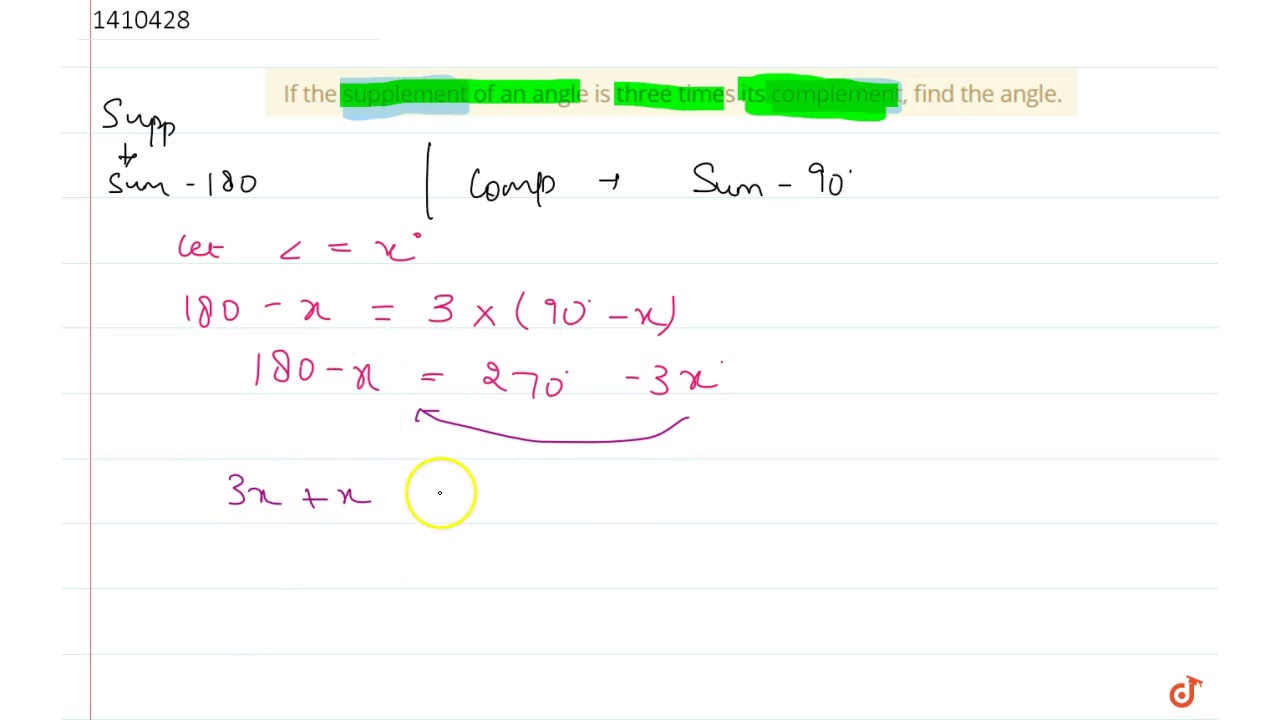 1410428
If the supplement of an angle is three times its complement, find the angle.
Supp
↓
Sum - 180 | Comp → Sum - 90°
Let ∠ = x°
180 - x = 3 × (90° - x)
180 - x = 270° - 3x°
3x + x